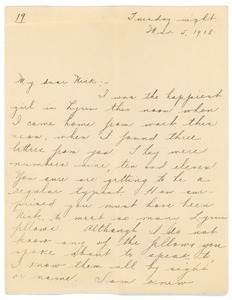 19
Tuesday night
Mar 5, 1918
My dear Nick:-
I was the happiest
girl in Lynn this noon when
I came home from work this
noon, when I found three
letters from you. They were
numbers nine ten and eleven
You sure are getting to be a
regular typist. How sur-
prised you must have been
Nick, to meet so many Lynn
fellows. Although I do not
know any of the fellows you
spoke about to speak to
I know them all by sight
or name. I am